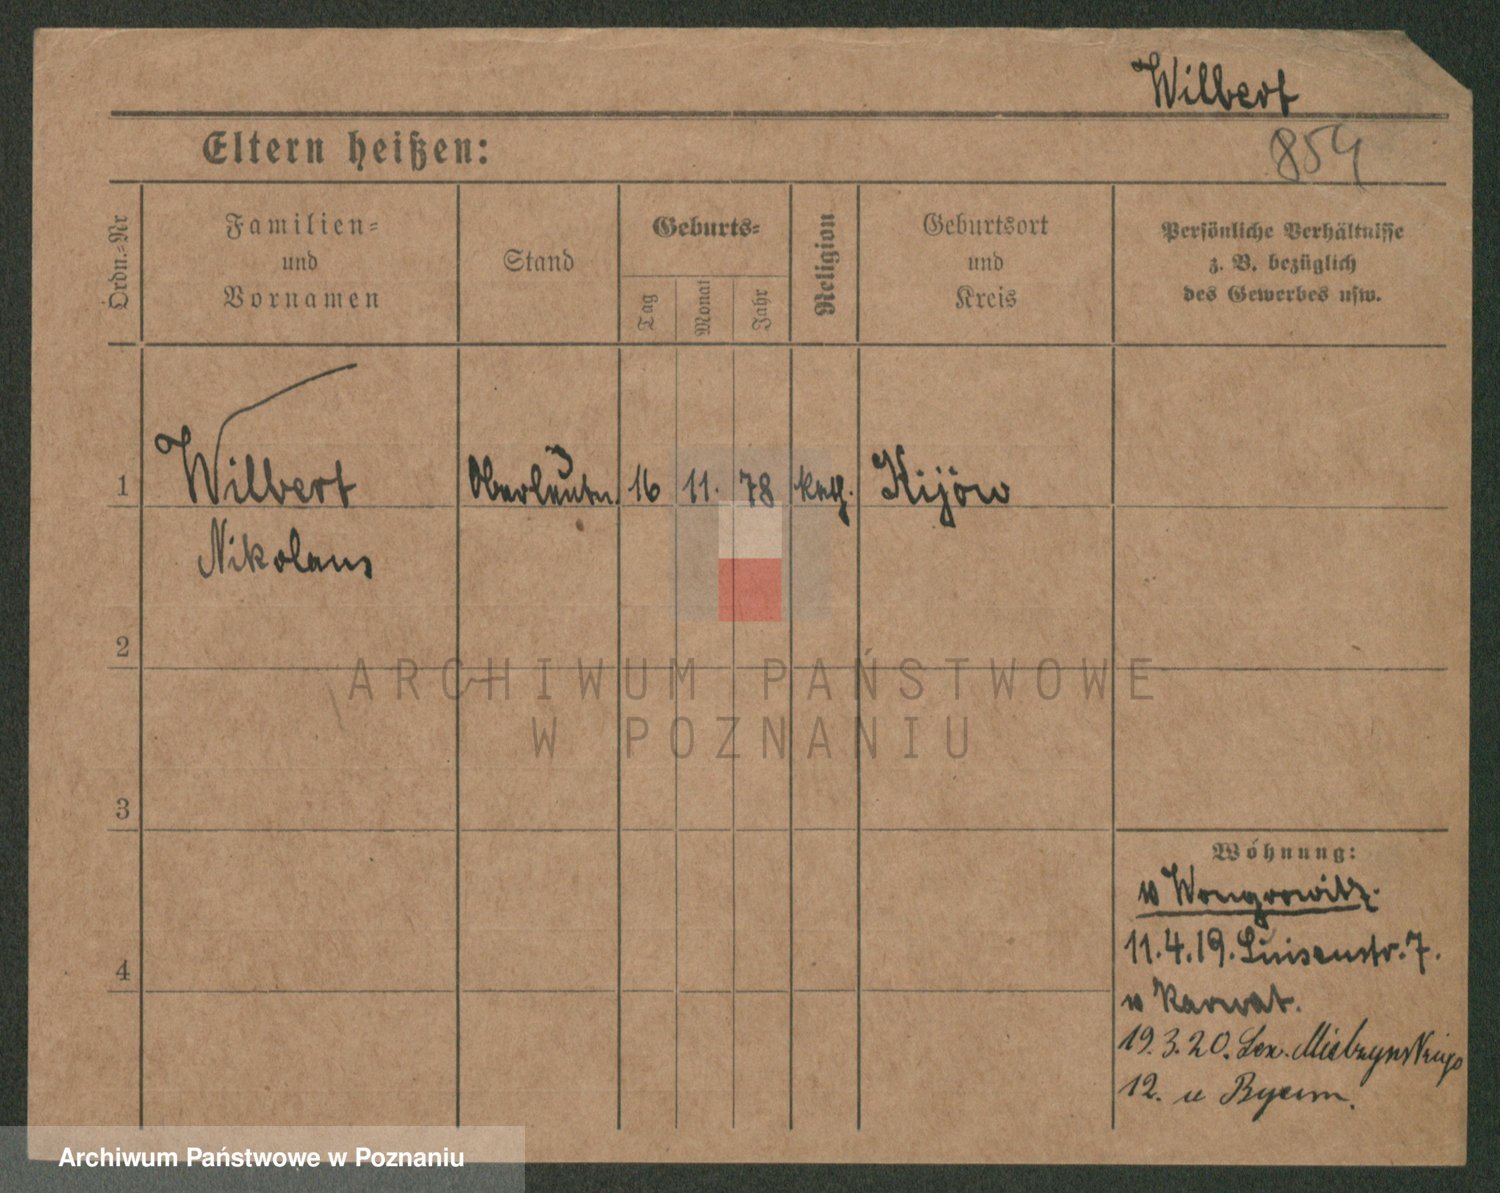 Wilbert
854
Eltern heißen:
Ordn.-Nr
Familien-
und
Vornamen
Stand
Geburts-
Tag
Monat
Jahr
Religion
Geburtsort
und
Kreis
Persönliche Verhältnisse
z. B. bezüglich
des Gewerbes usw.
1
Wilbert
Oberleutn.
16
11.
78
kath.
Kijów
Nikolaus
2
ARCHIWUM PAŃSTWOWE
W POZNANIU
3
Wohnung:
Wongrowitz.
11.4.19. Luisenstr. 7.
Karwat.
4
19.3.20.
12. u
Archiwum Państwowe w Poznaniu